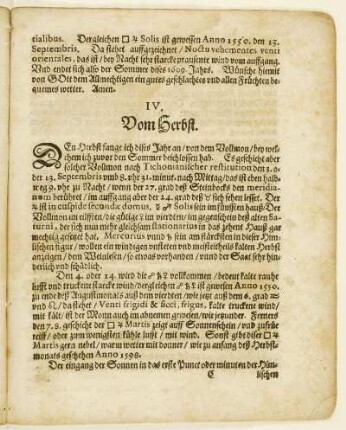 tialibus. Dergleichen □ ♃ Solis ist gewesen Anno 1550. den 13.
Septembris, Da stehet auffgezeichnet / Noctu vehementes venti
orientales, das ist / bey Nacht sehr starcke prausente wind vom auffgang.
Und endet sich also der Sommer dises 1609. Jahrs. Wünsche hiemit
von GOtt dem Allmechtigen ein gutes geschlachtes und allen Früchten be-
quemes wetter. Amen.
IV.
Vom Herbst.
DEn Herbst fange ich dises Jahr an / von dem Vollmon / bey wel-
chem ich zuvor den Sommer beschlossen hab. Es geschicht aber
solcher Vollmon nach Tichonianischer restitution den 3. o-
der 13. Septembris umb 8. uhr 31. minut. nach Mittag / das ist eben halb-
weg 9. uhr zu Nacht / wenn der 27. grad deß Steinbocks den meridia-
num berührt / im auffgang aber der 24. grad deß ♉ sich sehen lesset. Der
ist in cuspide secundæ domus, Solis sein im fünfften hauß Der
Vollmon im eilfften / die gütige ♀ im vierdten / im gegenschein deß alten Sa-
turni, der sich nun mehr gleichsam stationarius in das zehent Hauß gar
mechtig gesetzet hat. Mercurius unnd ♄ sein am stärcksten in dieser Him-
lischen figur / wollen ein windigen unsteten und meistestheils kalten Herbst
anzeigen / dem Weinlesen / so etwas vorhanden / unnd der Saat sehr hin-
derlich und schädlich.
Den 4. oder 14. wird die vollkommen / bedeut kalte rauhe
lufft und truckene starcke wind / dergleichen ist gewesen Anno 1550.
zu ende deß Augustmonats auß dem vierdten / wie jetzt auß dem 6. grad
und ♌ / da stehet / Venti frigidi & sicci, frigus, kalte truckene wind /
mit kält / ist der Monn auch im abnemen gewesen / wie jetzunder. Ferners
den 7. 8. geschicht der □ ♃ Martis zeigt auff Sonnenschein / und zufrüe
reiff / oder zum wenigsten kühle lufft / mit wind. Sonst gibt diser □ ♃
Martis gern nebel / warm wetter mit donner / wie zu anfang deß Herbst-
monats geschehen Anno 1598.
Der eingang der Sonnen in das erste Punct oder minuten der Him-
C lischen